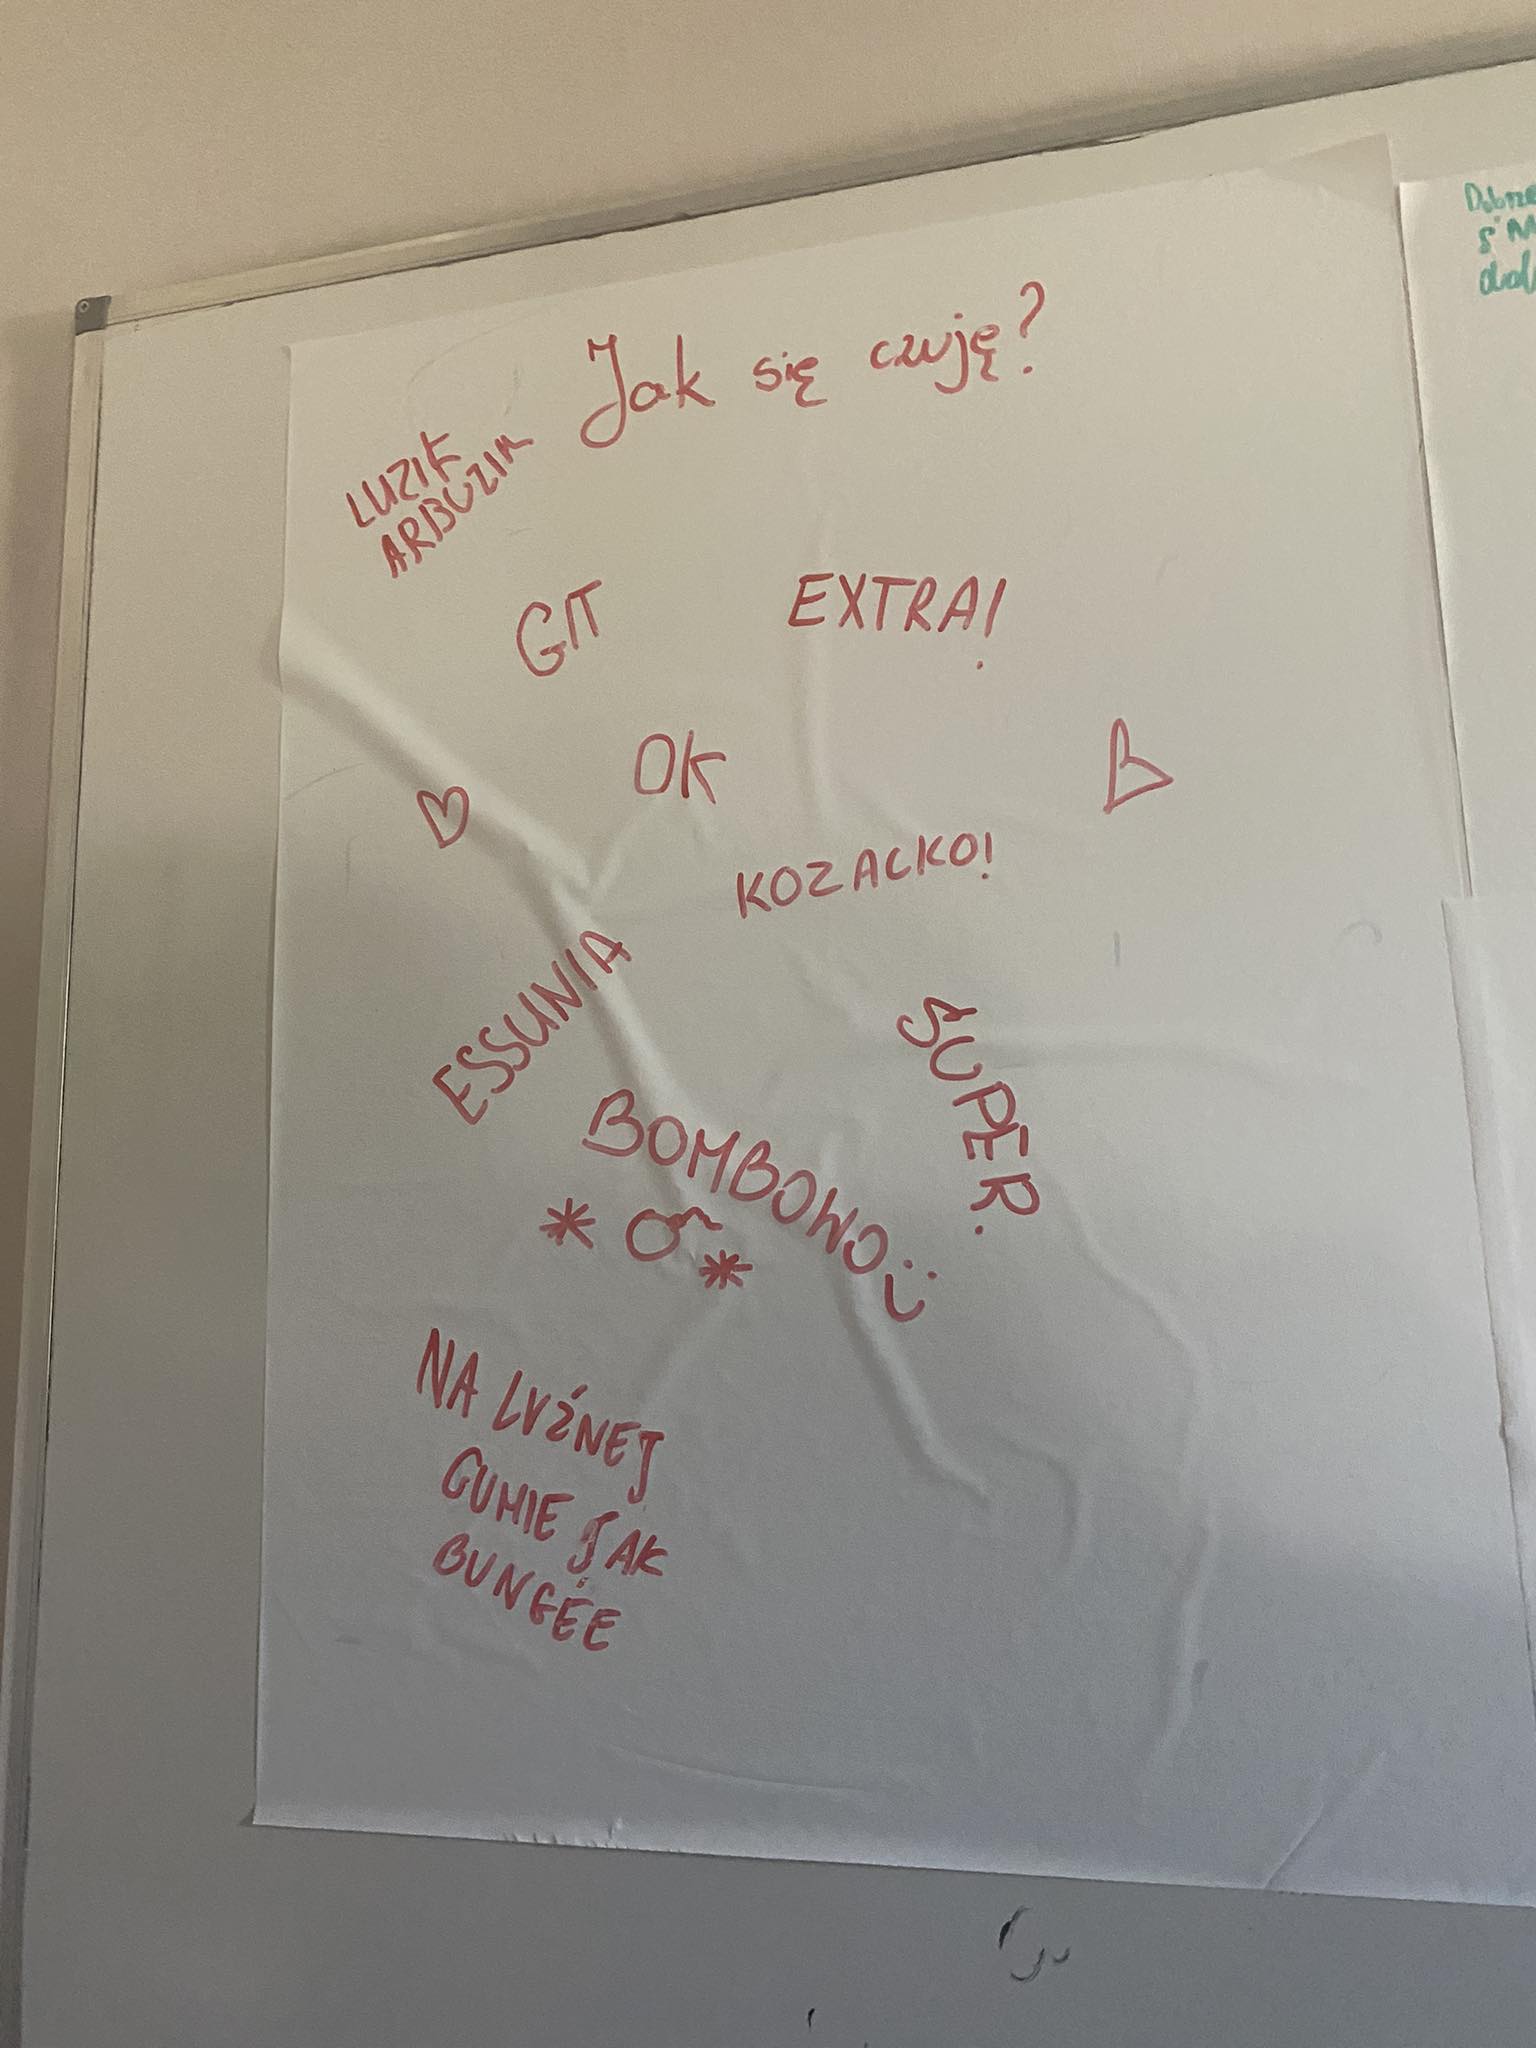 Jak się czuję?
LUZIK
ARBUZIK
GIT
EXTRA!
OK
KOZACKO!
ESSUNIA
SUPER.
BOMBOWO
NA LUŹNEJ
GUMIE JAK
BUNGEE